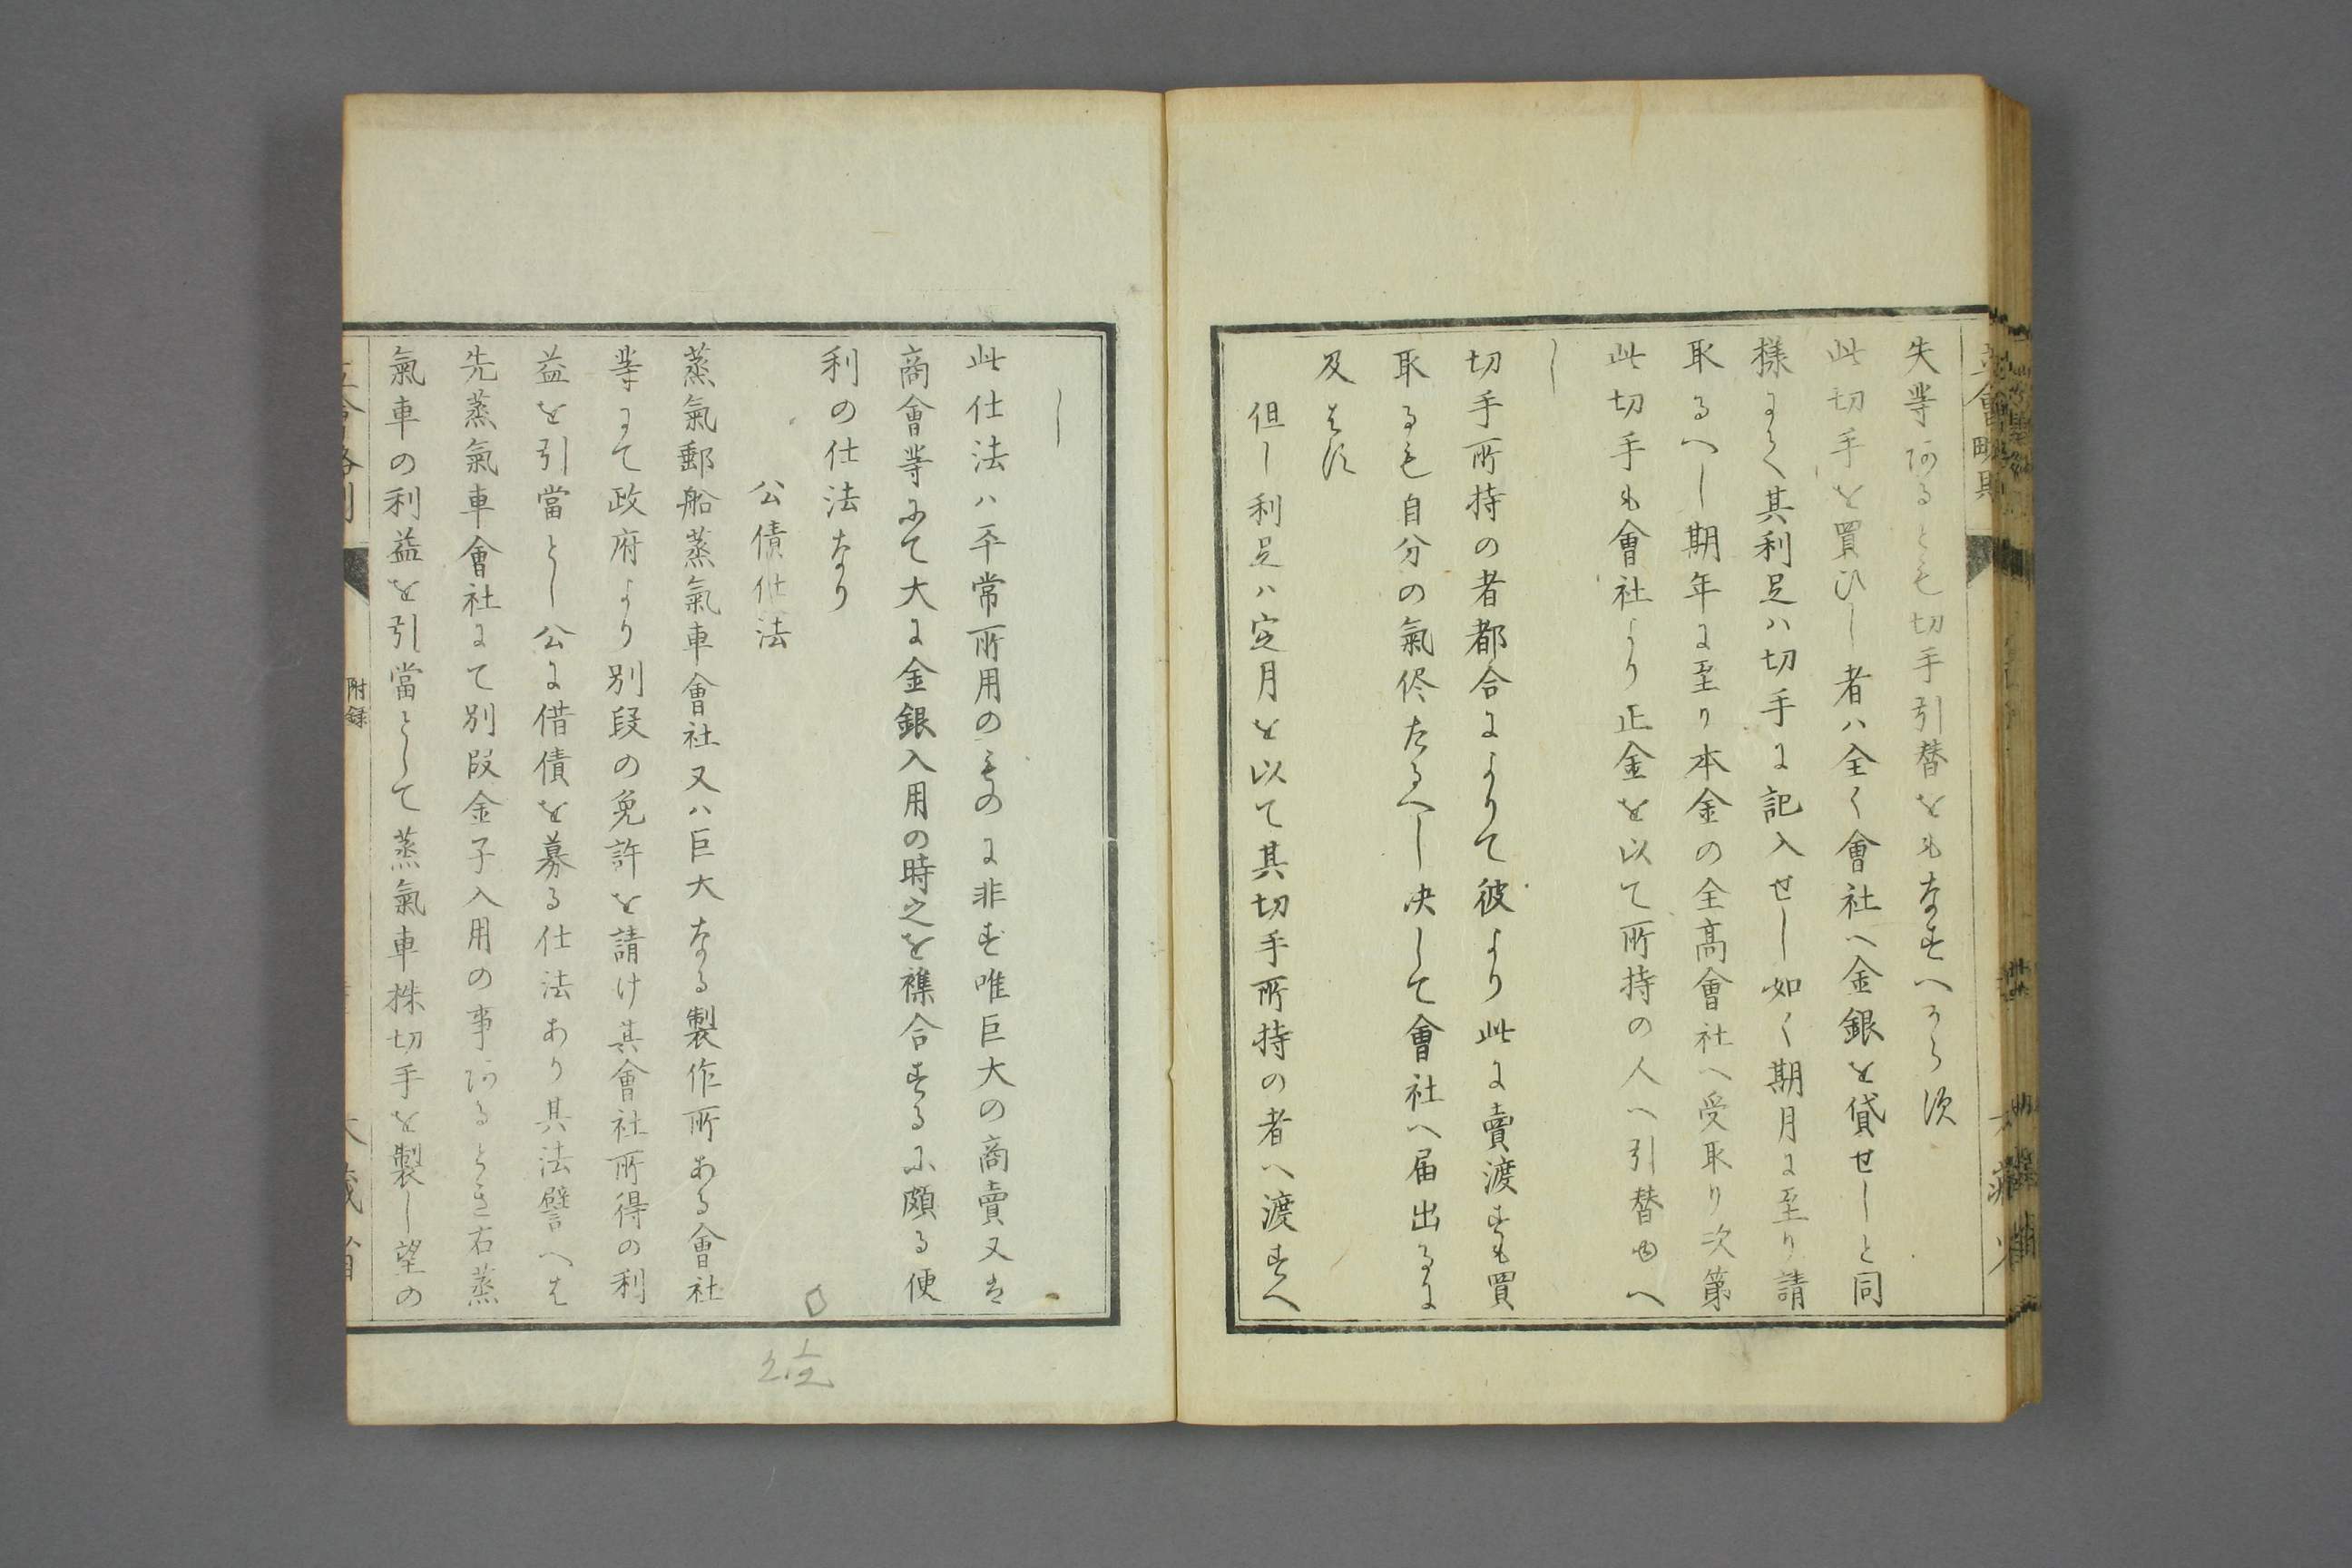 立會略則
失等阿るとも切手引替をもなすへからす
此切手を買ひし者ハ全く會社へ金銀を貸せしと同
樣にて其利足ハ切手に記入せし如く期月に至り請
取るへし期年に至り本金の全高會社へ受取り次第
此切手も會社より正金を以て所持の人へ引替申へ
し
切手所持の者都合によりて彼より此に賣渡すも買
取るも自分の氣侭たるへし决して會社へ届出るに
及はす
但し利足ハ定月を以て其切手所持の者へ渡すへ
し
此仕法ハ平常所用のものに非す唯巨大の商賣又は
商會等にて大に金銀入用の時之を襍合するに頗る便
利の仕法なり
公債仕法
蒸氣郵船蒸氣車會社又ハ巨大なる製作所ある會社
等にて政府より別段の免許を請け其會社所得の利
益を引當とし公に借債を募る仕法あり其法譬へは
先蒸氣車會社にて別段金子入用の事阿るとき右蒸
氣車の利益を引當として蒸氣車株切手を製し望の
立會略則
附録
大藏省